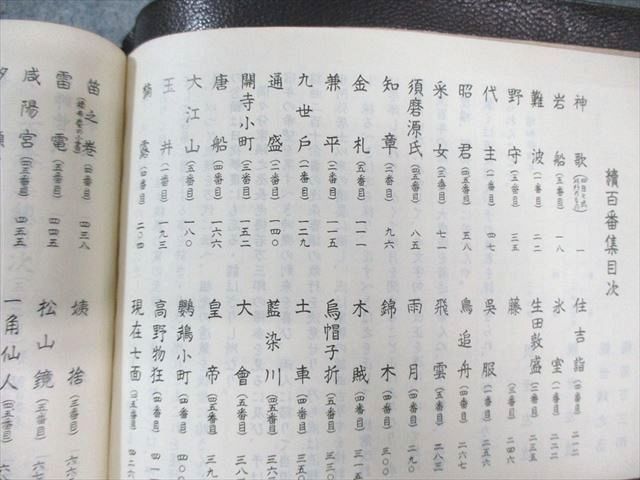 續百番集目次
神歌 一
岩船(五番目) 一八
難波(一番目) 二二
野守(五番目) 三五
代主(一番目) 四七
昭君(四五番目) 五八
采女(三番目) 七一
須磨源氏(四五番目) 八五
知章(二番目) 九六
金札(五番目) 一一一
兼平(二番目) 一一五
九世戸(一番目) 一二九
通盛(二番目) 一四〇
關寺小町(三番目) 一五二
唐船(四番目) 一六六
大江山(五番目) 一八〇
玉井(一番目) 一九三
(四番目) 二〇四
住吉詣(四番目) 二一二
氷室(一番目)
生田敦盛(二番目) 二三五
藤(三番目) 二四四
吳服(一番目) 二五六
鳥追舟(四番目) 二六七
飛雲(五番目) 二八三
雨月(四番目) 二九〇
錦木(四番目) 三〇〇
木賊(四番目) 三一五
烏帽子折(五番目) 三三〇
土車(四番目)
藍染川(四五番目)
大會(五番目) 三八
皇帝(五番目) 三九
鸚鵡小町(三番目) 四
高野物狂(四番目) 四一
現在七面(四五番目) 四二六
笛之卷(四番目) 四三八
雷電(五番目) 四四五
咸陽宮(四五番目) 四五五
姨捨(三番目) 六六
松山鏡(五番目) 六七
一角仙人(四五番目)